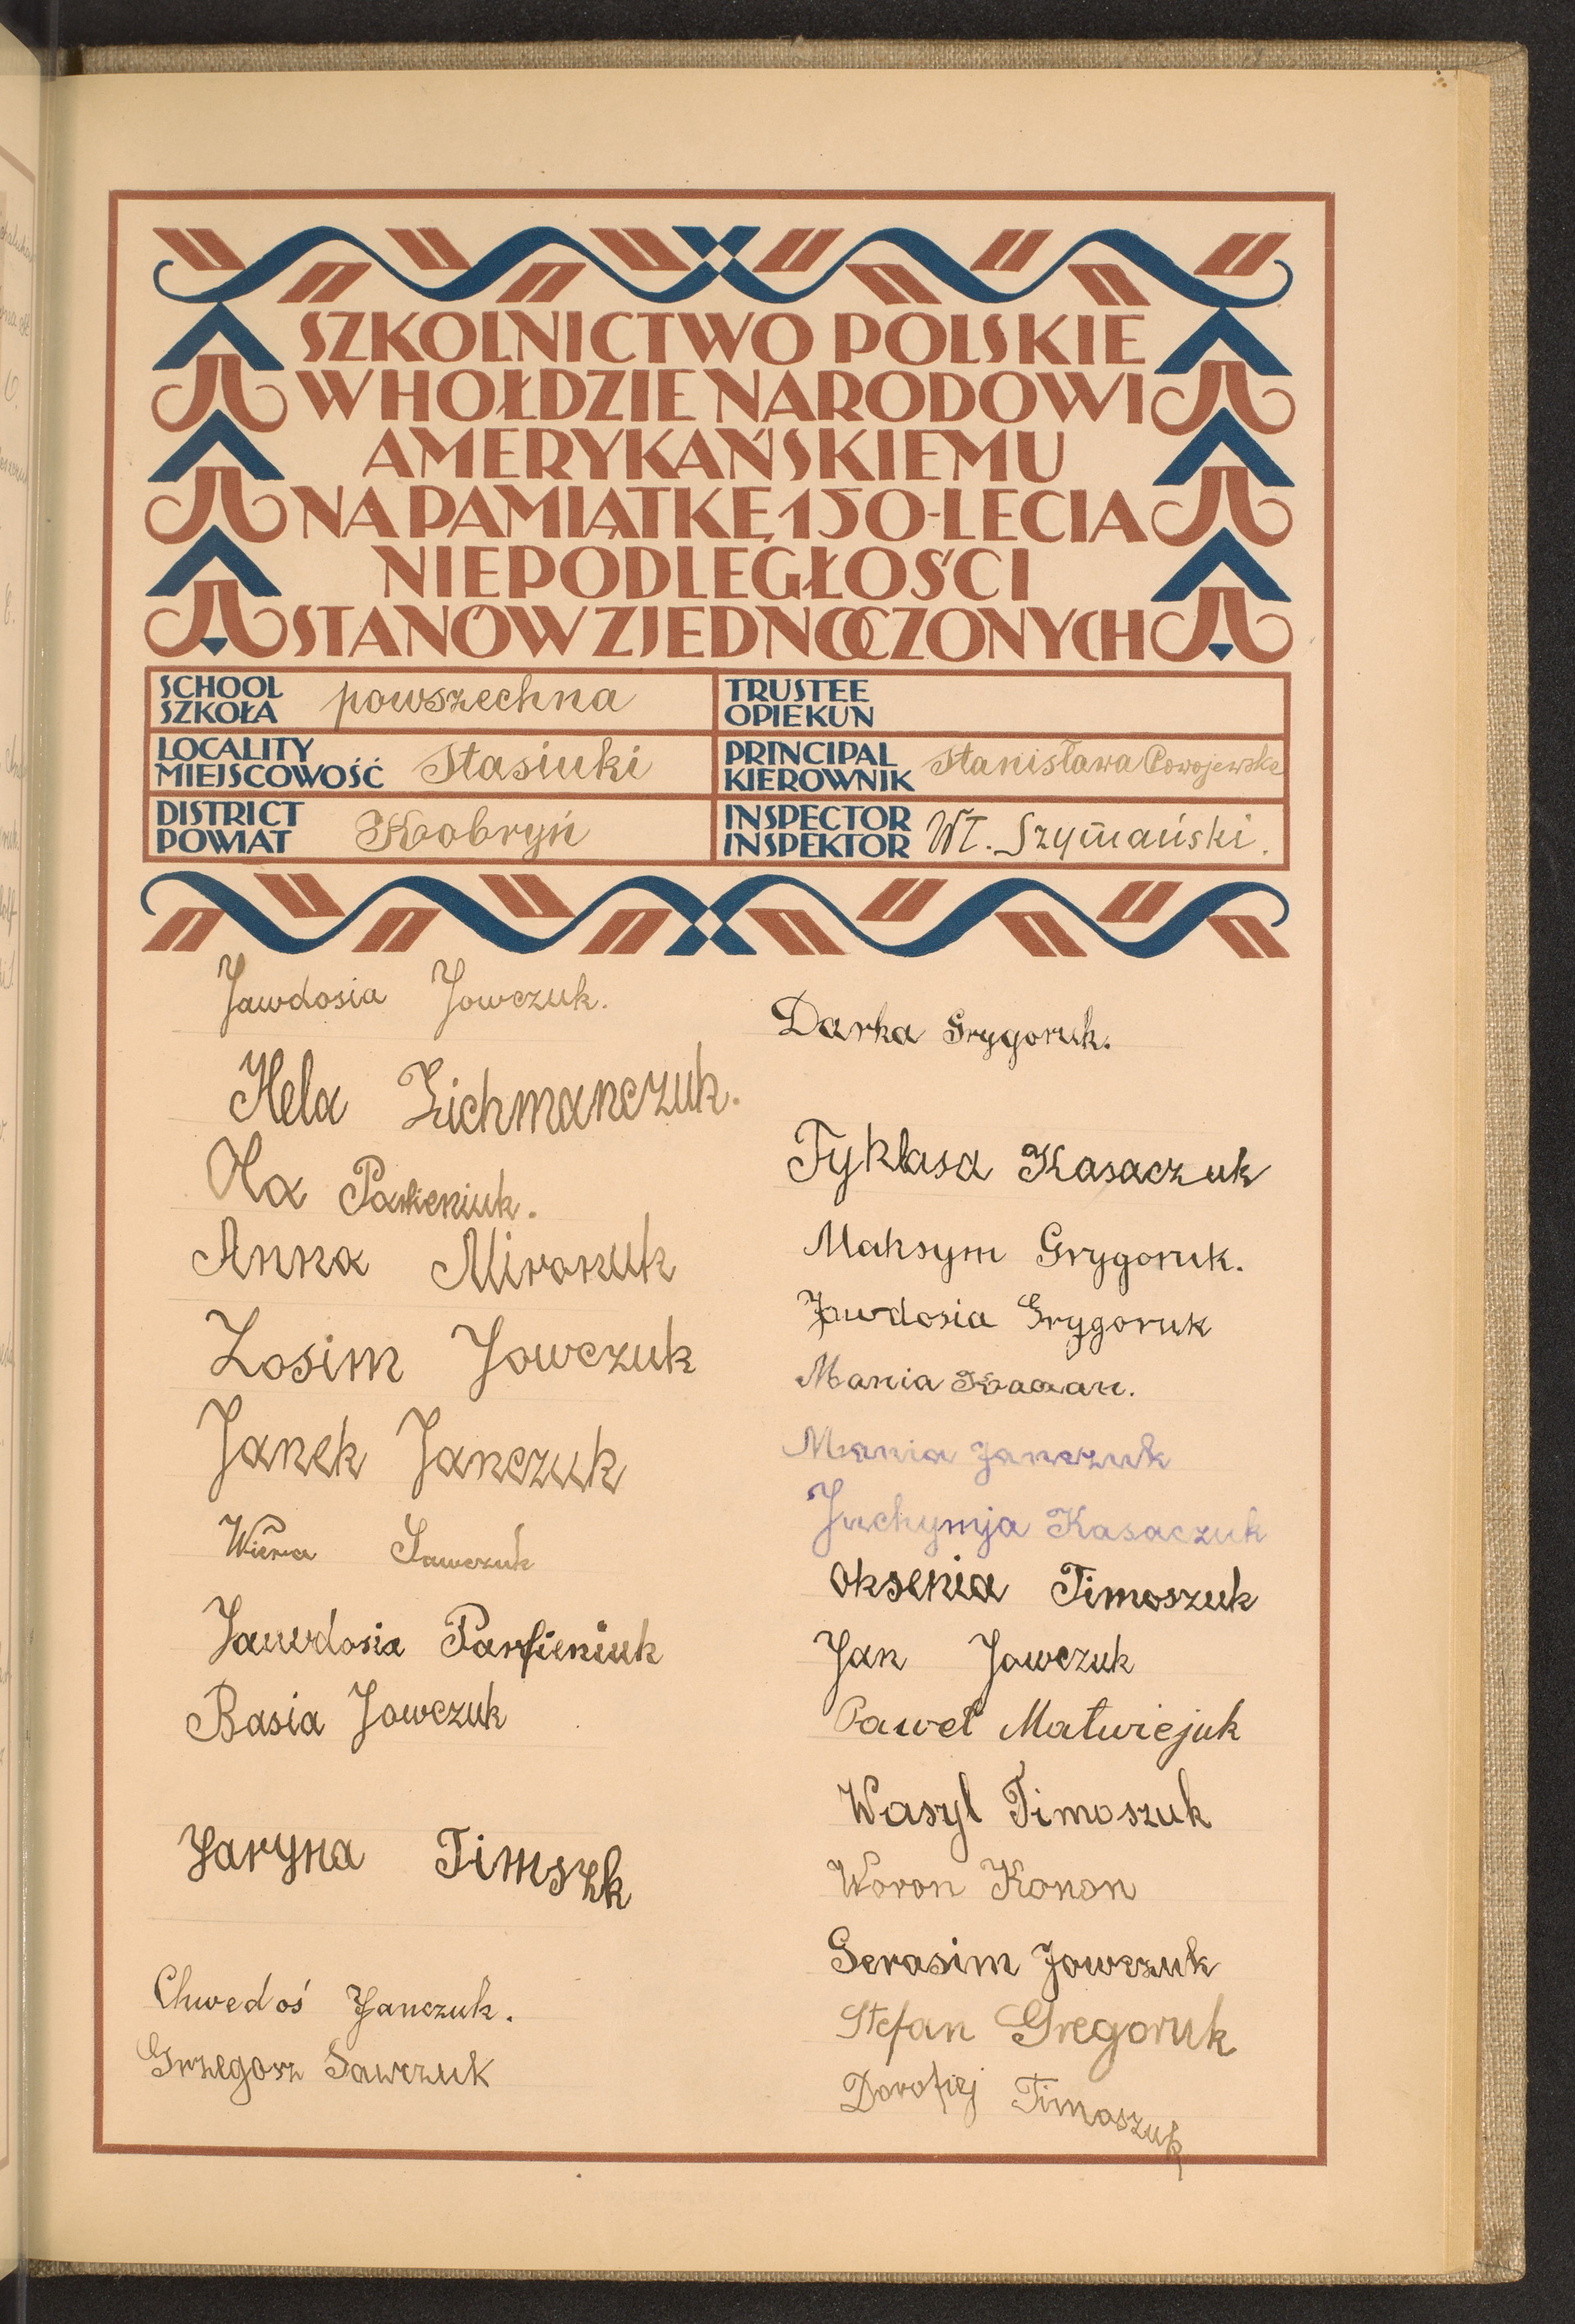 SZKOLNICTWO POLSKIE
W HOŁDZIE NARODOWI
AMERYKAŃSKIEMU
NA PAMIĄTKĘ 150-LECIA
NIEPODLEGŁOŚCI
STANÓW ZJEDNOCZONYCH
SCHOOL
SZKOŁA powszechna
TRUSTEE
OPIEKUN
LOCALITY
MIEJSCOWOŚĆ Stasiuki
PRINCIPAL
KIEROWNIK Stanisława
DISTRICT
POWIAT Kobryń
INSPECTOR
INSPEKTOR Wł. Szymański.
Jawdosia Jowczuk.
Hela Zichmanczuk.
Ola Parfieniuk.
Anna Mironuk
Zosim Jowczuk
Janek Janczuk
Wiera Sawczuk
Jawdosia Parfieniuk
Basia Jowczuk
Jaryna Timszk
Chwedoś Janczuk.
Grzegosz Sawczuk
Darka Grygoruk.
Tyklasa Kasaczuk
Maksym Grygoruk.
Jawdosia Grygoruk
Mania
Mania Janczuk
Juchymja Kasaczuk
Oksenia Timoszuk
Jan Jowczuk
Paweł Matwiejuk
Wasyl Timoszuk
Woron Konon
Gerasim Jowczuk
Stefan Gregoruk
Dorofiej Timoszuk